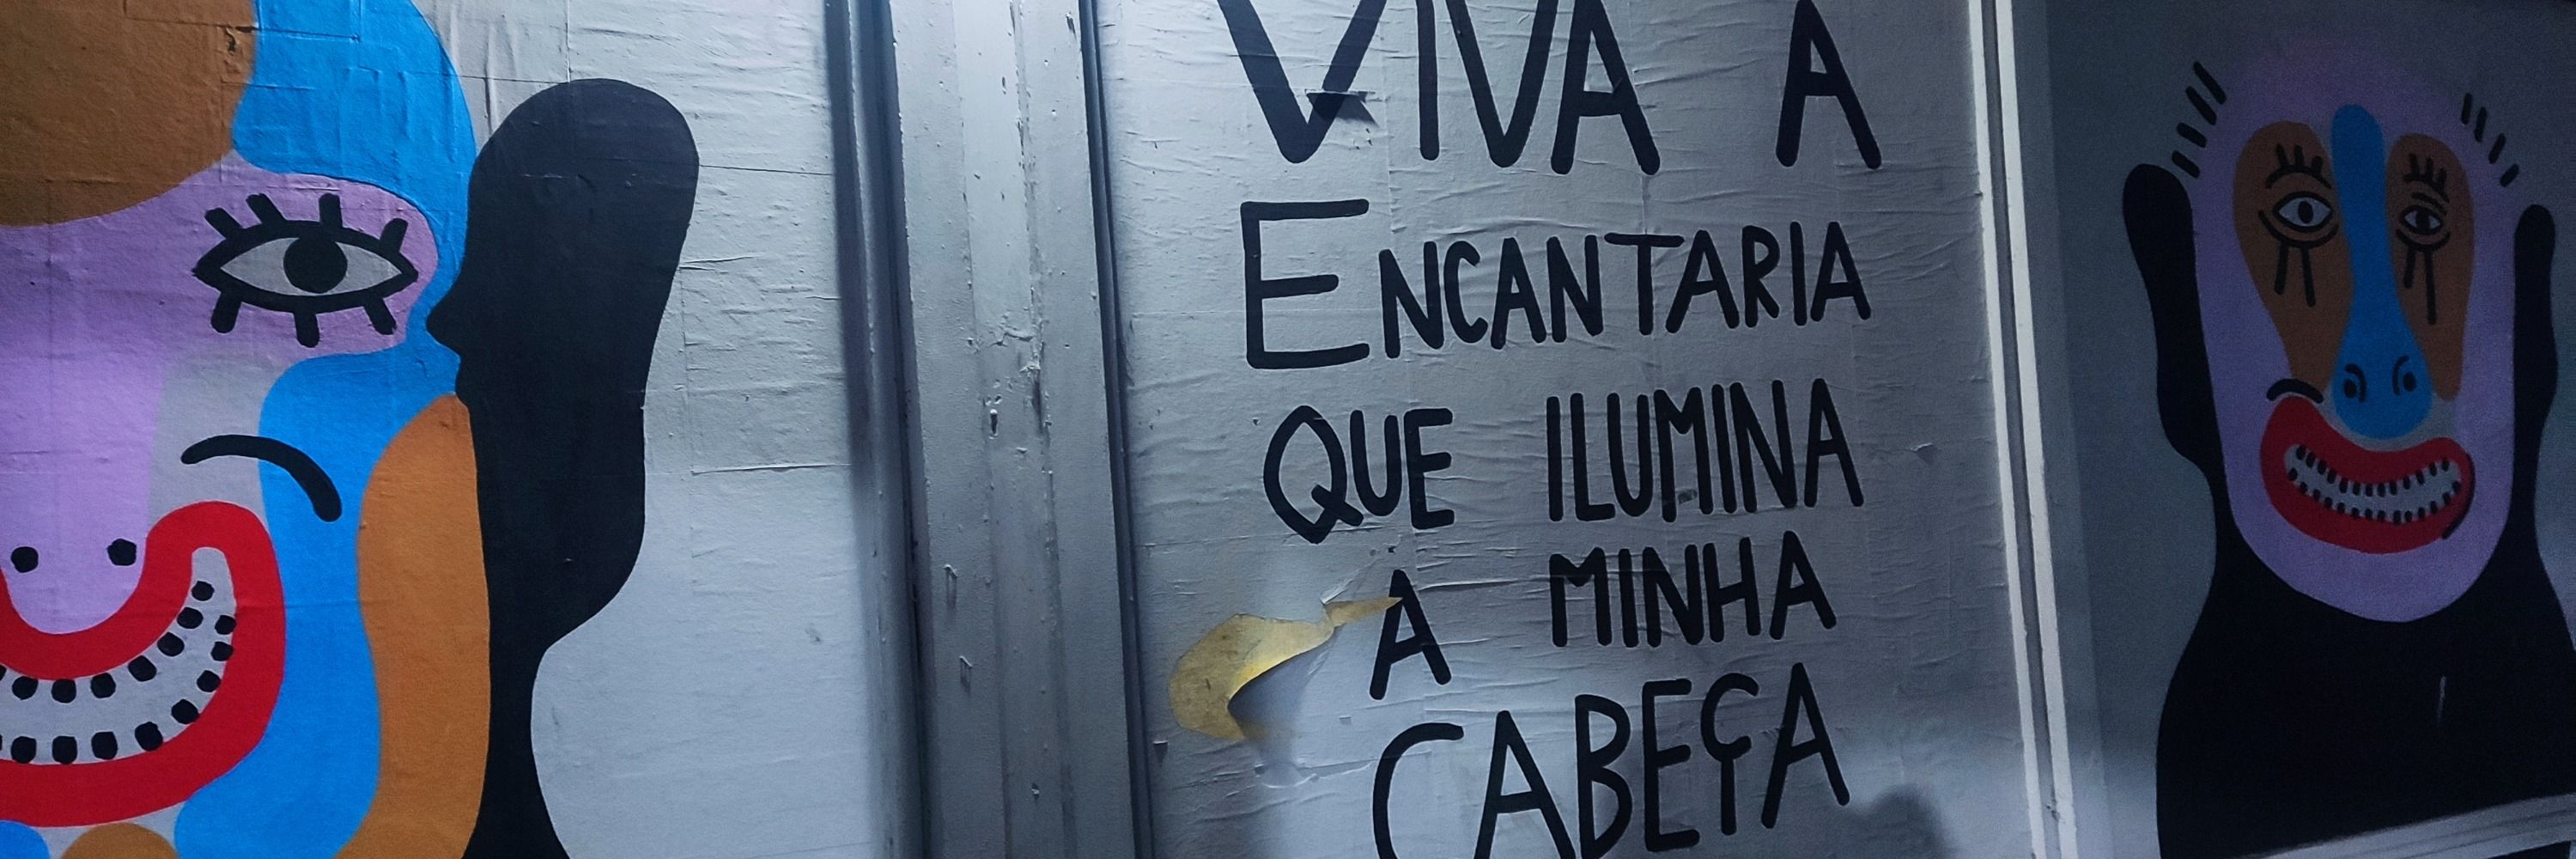 VIVA A
ENCANTARIA
QUE ILUMINA
A MINHA
CABEÇA